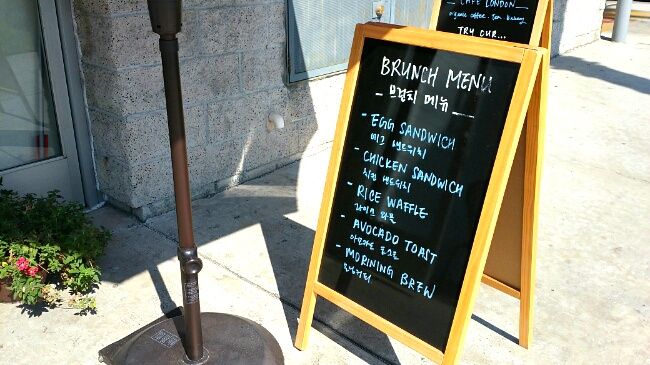 CAFE LONDON
organic coffee. 
TRY OUR...
BRUNCH MENU
- 브런치 메뉴 -
- EGG SANDWICH
에그 샌드위치
- CHICKEN SANDWICH
치킨 샌드위치
- RICE WAFFLE
라이스 와플
- AVOCADO TOAST
아보카도 토스트
- MORINING BREW